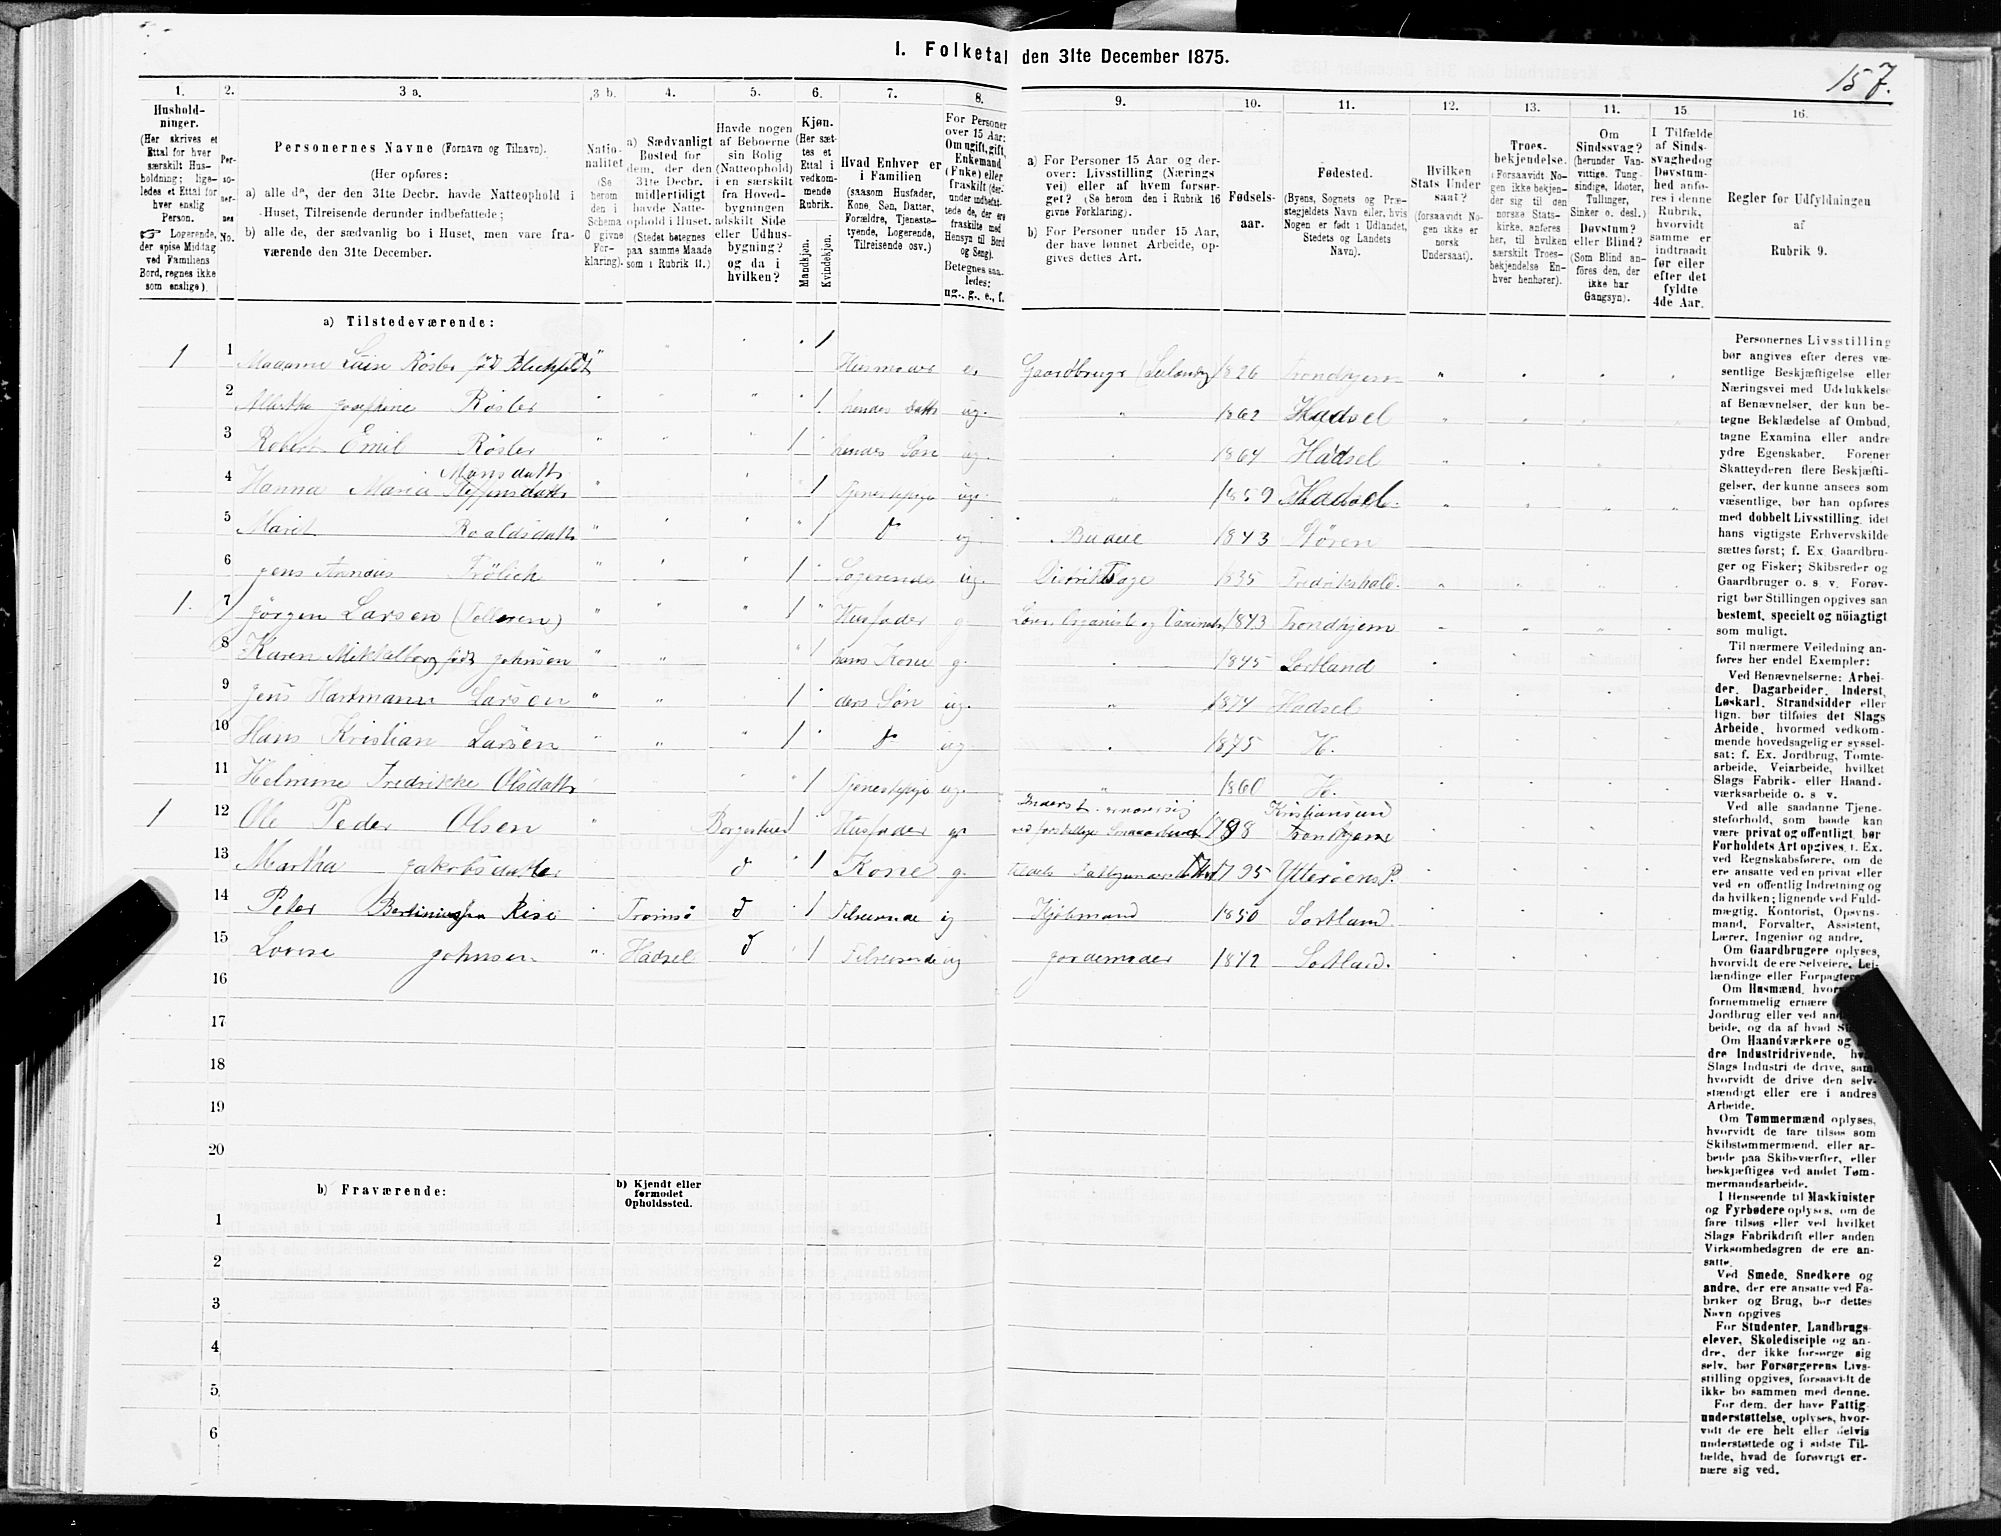 I. Folketal den 31te December 1875.
157.
1. 2. 3 a. 3 b. 4. 5. 6. 7. 8. 9. 10. 11. 12. 13. 11. 15 16.
Hushold-
ninger.
(Her skrives et
Ettal for hver
særskilt Hus-
holdning; lige-
ledes et Ettal for
hver enslig
Person.
☞ Logerende,
der spise Middag
ved Familiens
Bord, regnes ikke
som enslige).
Per-
so-
ner-
nes
No.
Personernes Navne (Fornavn og Tilnavn).
(Her opføres:
a) alle de, der den 31te Decbr. havde Natteophold i
Huset, Tilreisende derunder indbefattede;
b) alle de, der sædvanlig bo i Huset, men vare fra-
værende den 31te December.
Natio-
nalitet
(Se
herom
den i
Schema
O givne
For-
klaring).
a) Sædvanligt
Bosted for
dem, der den
31te Decbr.
midlertidigt
havde Natte-
ophold i Huset.
(Stedet betegnes
paa samme Maade
som i Rubrik 11.)
Havde nogen
af Beboerne
sin Bolig
(Natteophold)
i en særskilt
fra Hoved-
bygningen
adskilt Side
eller Udhus-
bygning?
og da i
hvilken?
Kjøn.
(Her sæt-
tes et
Ettal i
vedkom-
mende
Rubrik.
Mandkjøn.
Kvindekjøn.
Hvad Enhver er
i Familien
(saasom Husfader,
Kone, Søn, Datter,
Forældre, Tjeneste-
tyende, Logerende,
Tilreisende osv.)
For Personer
over 15 Aar:
Om ugift, gift,
Enkemand
(Enke) eller
fraskilt (der-
under indbefat-
tede de, der ere
fraskilte med
Hensyn til Bord
og Seng).
Betegnes saa-
ledes:
ug., g., e., f.
a) For Personer 15 Aar og der-
over: Livsstilling (Nærings
vei) eller af hvem forsør-
get? (Se herom den i Rubrik 16
givne Forklaring).
b) For Personer under 15 Aar,
der have lønnet Arbeide, op-
gives dettes Art.
Fødsels-
aar.
Fødested.
(Byens, Sognets og Præ-
stegjeldets Navn eller, hvis
Nogen er født i Udlandet,
Stedets og Landets
Navn).
Hvilken
Stats Under
saat?
(forsaavidt No-
gen ikke er
norsk
Undersaat).
Troes-
bekjendelse.
(Forsaavidt No-
gen ikke bekjen-
der sig til den
norske Stats-
kirke, anføres
her, til hvilken
særskilt Troes-
bekjendelse En-
hver henhører).
Om
Sindssvag?
(herunder Van-
vittige, Tung-
sindige, Idioter,
Tullinger,
Sinker o. desl.)
Døvstum?
eller Blind?
(Som Blind an-
føres den, der
ikke har
Gangsyn).
I Tilfælde
af Sinds-
svaghed og
Døvstum-
hed anfø-
res i denne
Rubrik,
hvorvidt
samme er
indtraadt
før eller
efter det
fyldte
4de Aar.
Regler for Udfyldningen
af
Rubrik 9.
a) Tilstedeværende:
1 1 Madame Luise Røsler født Blichfeldt 1 Husmoder e. Gaardbruger 1826 Trondhjem
2 Josefine Røsler 1. hendes Datt. ug. 1862 Hadsel
3 Robert Emil Røsler 1 hendes Søn ug. 1864 Hadsel
Monsdatt.
4 Hanna Maria 1 Tjenestepige ug. 1859 Hadsel
5 Marit Roaldsdatt. 1 do ug. Budeie 1843 Støren
6 Jens Frölich 1 Logerende ug. 1835 Fredrikshald
1. 7 Jørgen Larsen 1 Husfader g. Organist og 1843 Trondhjem
8 Karen Mikkelborg født Johnsen 1 hans Kone g. 1845 Sortland
9 Jens Hartmann Larsen 1 deres Søn ug. 1874 Hadsel
10 Hans Kristian Larsen 1 do ug. 1875 H.
11 Helmine Fredrikke Olsdatt. 1 Tjenestepige ug. 1860 H.
Inderst Kristiansund
1 12 Ole Peder Olsen Borgestuen 1 Husfader g. 1798 Trondhjem
13 Martha Jakobsdatter do 1 Kone g. 1795 Ytterøens P.
14 Peter Rise Tromsø do 1 Tilreisende ug Kjøbmand 1850 Sortland.
15 Lovise Johnsen Hadsel do 1 Tilreisende ug Jordemoder 1842 Sortland.
16
17
18
19
20
b) Fraværende:
b) Kjendt eller
formodet
Opholdssted.
1
2
3
4
5
6
Personernes Livsstilling
bør angives efter deres væ-
sentlige Beskjæftigelse eller
Næringsvei med Udelukkelse
af Benævnelser, der kun be-
tegne Beklædelse af Ombud,
tagne Examina eller andre
ydre Egenskaber. Forener
Skatteyderen flere Beskjæfti-
gelser, der kunne ansees som
væsentlige, bør han opføres
med dobbelt Livsstilling, idet
hans vigtigste Erhvervskilde
sættes først; f. Ex. Gaardbru-
ger og Fisker; Skibsreder og
Gaardbruger o. s. v. Forøv-
rigt bør Stillingen opgives saa
bestemt, specielt og nöiagtigt
som muligt.
Til nærmere Veiledning an-
føres her endel Exempler:
Ved Benævnelserne: Arbei-
der, Dagarbeider, Inderst,
Løskarl, Strandsidder eller
lign. bør tilføies det Slags
Arbeide, hvormed vedkom-
mende hovedsagelig er syssel-
sat; f. Ex. Jordbrug, Tomte-
arbeide, Veiarbeide, hvilket
Slags Fabrik- eller Haand-
værksarbeide o. s. v.
Ved alle saadanne Tjene-
steforhold, som baade kan
være privat og offentligt, bør
Forholdets Art opgives, t. Ex.
ved Regnskabsførere, om de
ere ansatte ved en privat eller
ved en offentlig Indretning og
da hvilken; lignende ved Fuld-
mægtig, Kontorist, Opsyns-
mand, Forvalter, Assistent,
Lærer, Ingeniør og andre.
Om Gaardbrugere oplyses,
hvorvidt de ere Selveiere, Lei-
lændinge eller Forpagtere
Om Husmænd,
fornemmelig ernære
Jordbrug eller ved
beide, og da af hvad
Om Haandværkere og
dre Industridrivende,
Slags Industri de drive, samt
hvorvidt de drive den selv-
stændigt eller ere i andres
Arbeide.
Om Tømmermænd oplyses,
hvorvidt de fare tilsøs som
Skibstømmermænd, eller ar-
beide paa Skibsværfter, eller
beskjæftiges ved andet Tøm-
mermandsarbeide.
I Henseende til Maskinister
og Fyrbødere oplyses, om de
fare tilsøs eller ved hvilket
Slags Fabrikdrift eller anden
Virksomhedsgren de ere an-
satte.
Ved Smede, Snedkere og
andre, der ere ansatte ved Fa-
briker og Brug, bør dettes
Navn opgives
For Studenter, Landbrugs-
elever, Skoledisciple og an-
dre, der ikke forsørge sig
selv, bør Forsørgerens Livs-
stilling opgives, forsaavidt de
ikke bo sammen med denne.
For dem, der have Fattig-
understøttelse, oplyses, hvor-
vidt de ere helt eller delvis
understøttede og i sidste Til-
fælde, hvad de forøvrigt er-
nære sig ved.